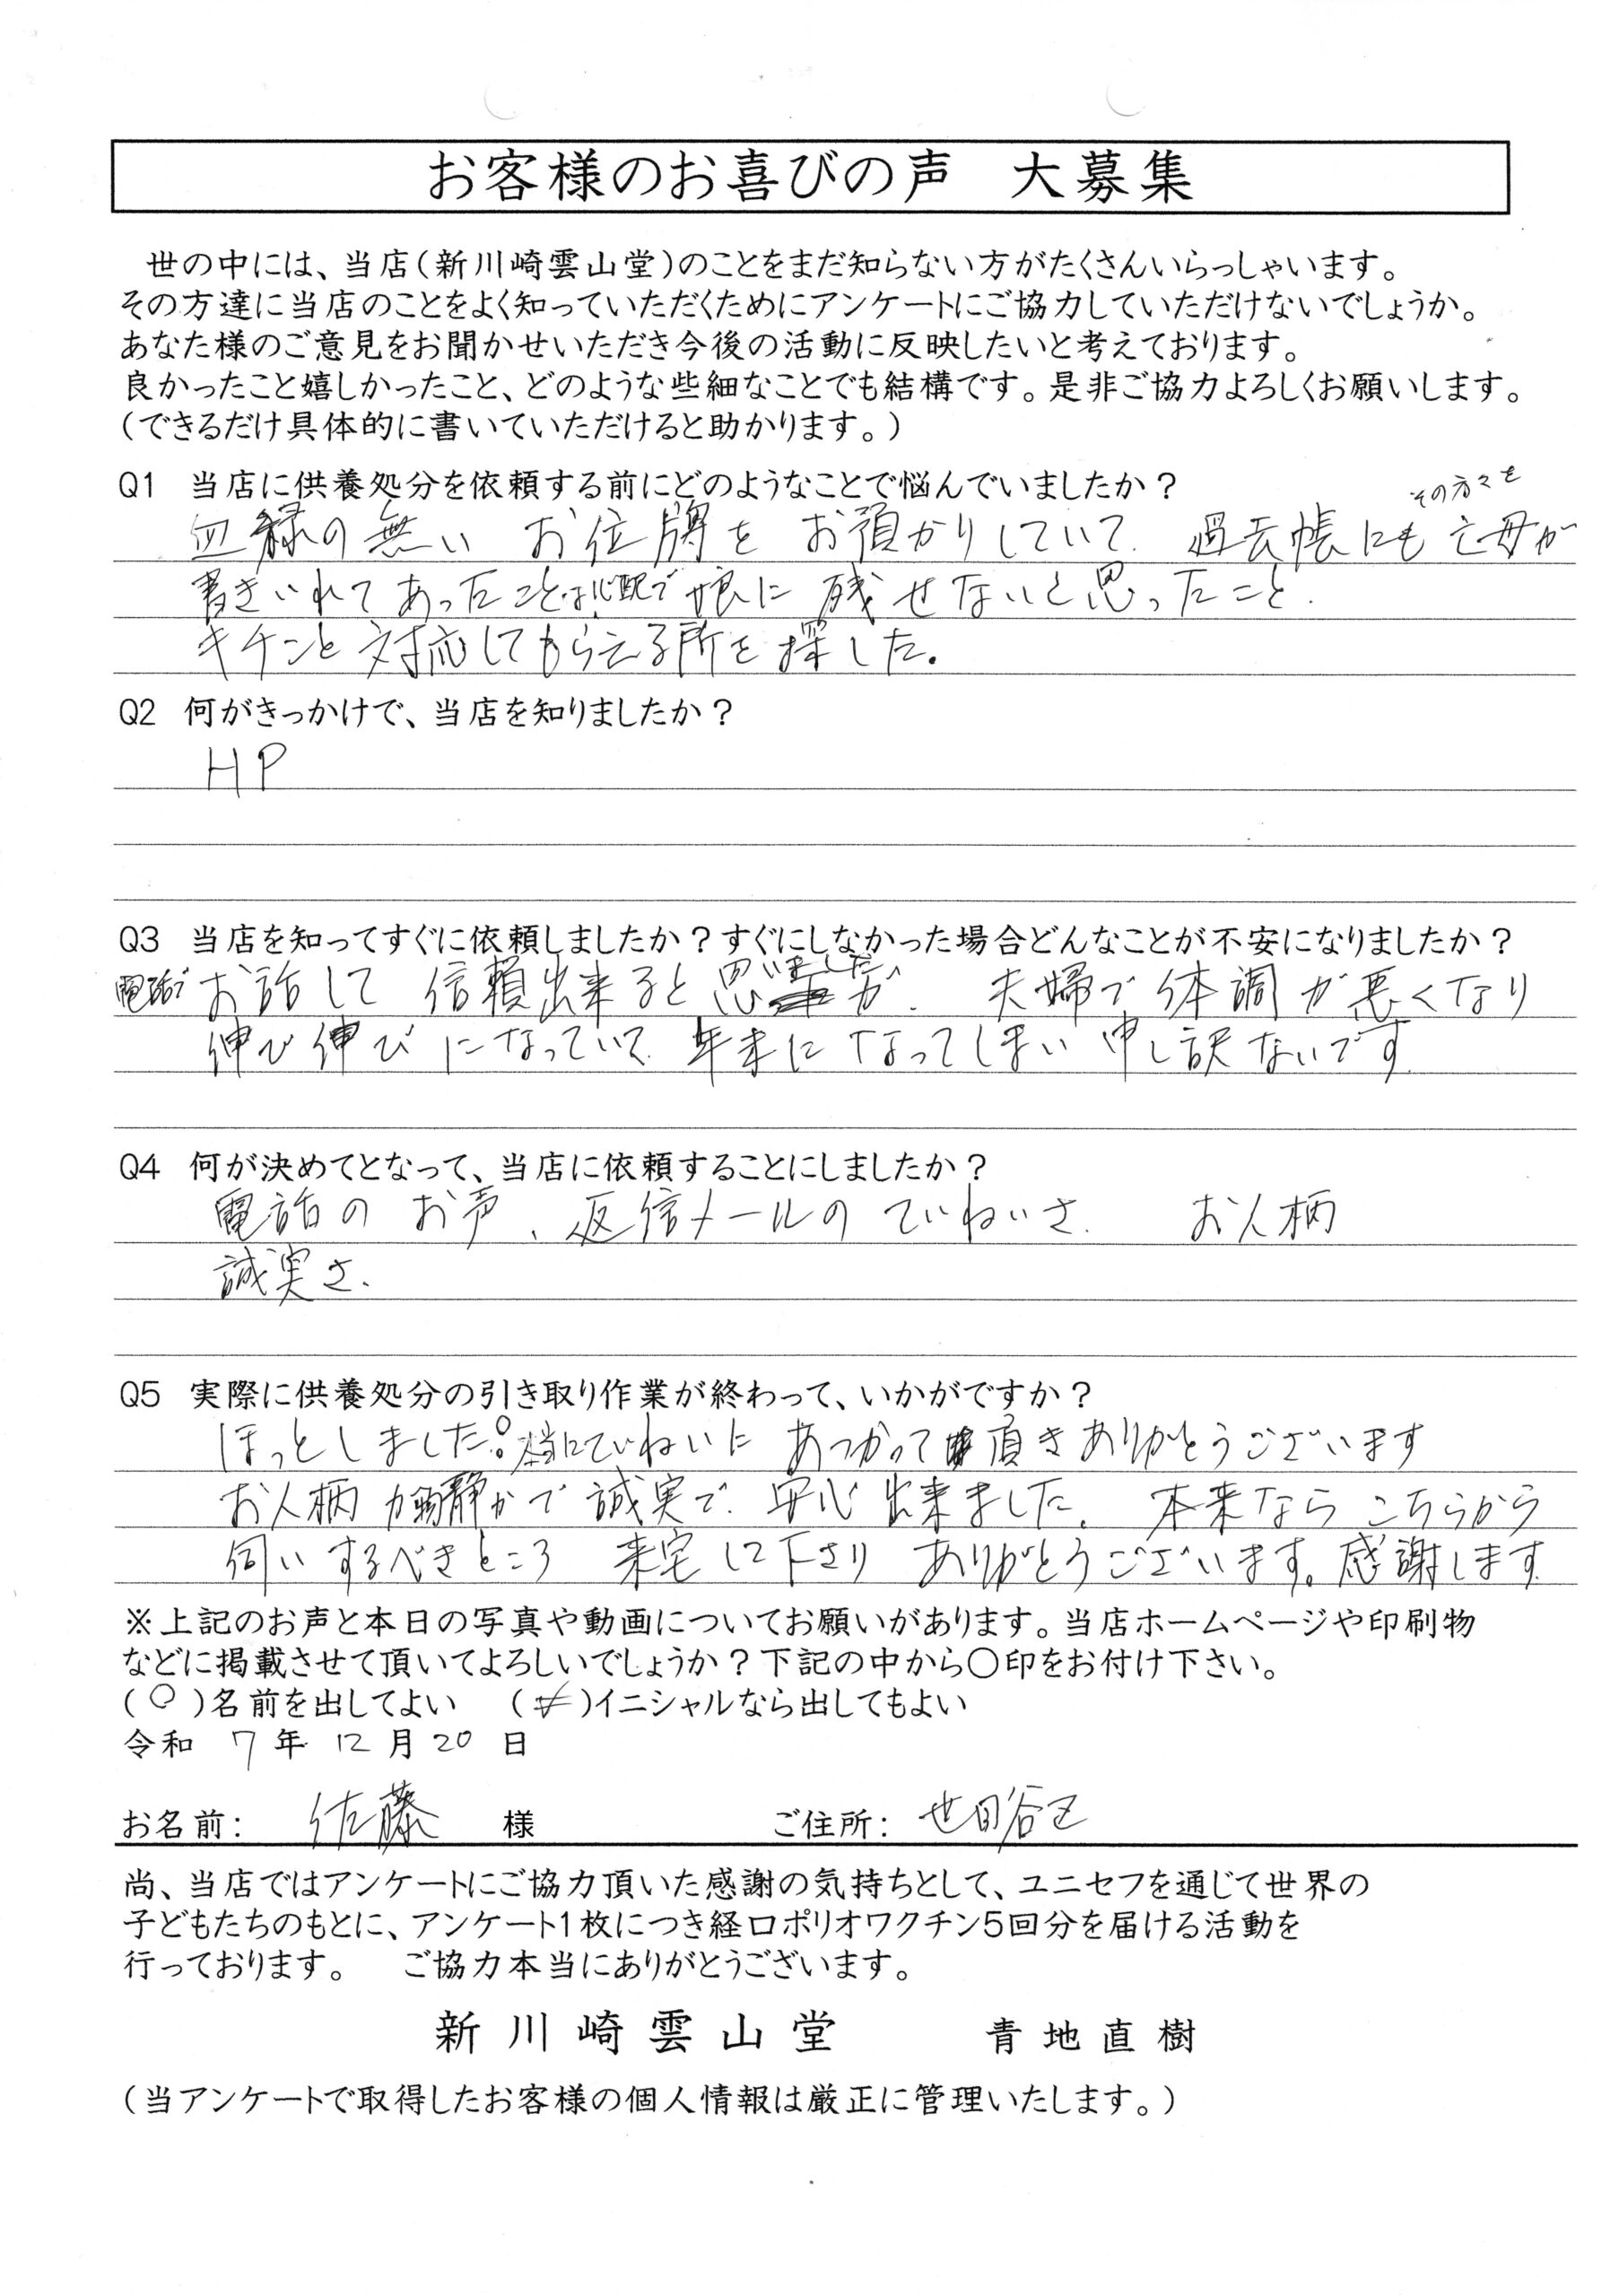 お客様のお喜びの声 大募集
世の中には、当店(新川崎雲山堂)のことをまだ知らない方がたくさんいらっしゃいます。
その方達に当店のことをよく知っていただくためにアンケートにご協力していただけないでしょうか。
あなた様のご意見をお聞かせいただき今後の活動に反映したいと考えております。
良かったこと嬉しかったこと、どのような些細なことでも結構です。是非ご協力よろしくお願いします。
(できるだけ具体的に書いていただけると助かります。)
Q1 当店に供養処分を依頼する前にどのようなことで悩んでいましたか?
その方々を
血縁の無い お位牌を お預かりしていて、過去帳にも 亡母が
書きいれてあったことは心配で 娘に 残せないと思ったこと.
キチンと対応してもらえる所を探した。
Q2 何がきっかけで、当店を知りましたか?
HP
Q3 当店を知ってすぐに依頼しましたか?すぐにしなかった場合どんなことが不安になりましたか?
電話で お話して 信頼出来ると思いましたが、 夫婦で体調が悪くなり
伸び伸びになっていて、年末になってしまい申し訳ないです
Q4 何が決めてとなって、当店に依頼することにしましたか?
電話の お声、返信メールの ていねいさ、 お人柄
誠実さ、
Q5 実際に供養処分の引き取り作業が終わって、いかがですか?
ほっとしました。本当にていねいに あつかって 頂きありがとうございます
お人柄が 静かで 誠実で、安心出来ました。 本来なら こちらから
伺いするべきところ 来宅して下さり ありがとうございます。感謝します
※上記のお声と本日の写真や動画についてお願いがあります。当店ホームページや印刷物
などに掲載させて頂いてよろしいでしょうか?下記の中から〇印をお付け下さい。
(〇)名前を出してよい ( )イニシャルなら出してもよい
令和 7年 12月20 日
お名前: 佐藤 様 ご住所: 世田谷区
尚、当店ではアンケートにご協力頂いた感謝の気持ちとして、ユニセフを通じて世界の
子どもたちのもとに、アンケート1枚につき経口ポリオワクチン5回分を届ける活動を
行っております。 ご協力本当にありがとうございます。
新川崎雲山堂 青地直樹
(当アンケートで取得したお客様の個人情報は厳正に管理いたします。)